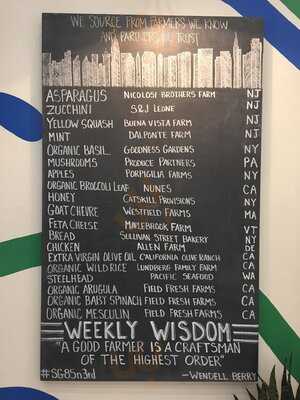 WE SOURCE FROM FARMERS WE KNOW
AND PARTNERS WE TRUST
ASPARAGUS NICOLOSI BROTHERS FARM NJ
ZUCCHINI S&J LEONE NJ
YELLOW SQUASH BUENA VISTA FARM NJ
MINT DALPONTE FARM NJ
ORGANIC BASIL GOODNESS GARDENS NY
MUSHROOMS PRODUCE PARTNERS PA
APPLES PORPIGLIA FARMS NY
ORGANIC BROCCOLI LEAF NUNES CA
HONEY CATSKILL PROVISIONS NY
GOAT CHEVRE WESTFIELD FARMS MA
FETA CHEESE MAPLEBROOK FARM VT
BREAD SULLIVAN STREET BAKERY NY
CHICKEN ALLEN FARM DE
EXTRA VIRGIN OLIVE OIL CALIFORNIA OLIVE RANCH CA
ORGANIC WILD RICE LUNDBERG FAMILY FARM CA
STEELHEAD PACIFIC SEAFOOD WA
ORGANIC ARUGULA FIELD FRESH FARMS CA
ORGANIC BABY SPINACH FIELD FRESH FARMS CA
ORGANIC MESCULIN FIELD FRESH FARMS CA
WEEKLY WISDOM
"A GOOD FARMER IS A CRAFTSMAN
OF THE HIGHEST ORDER"
#SG85n3rd -WENDELL BERRY